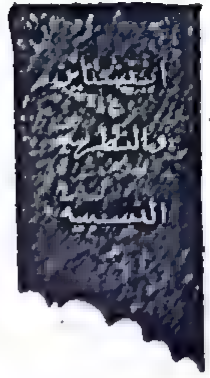 اينشتاين
والنظرية
النسبية